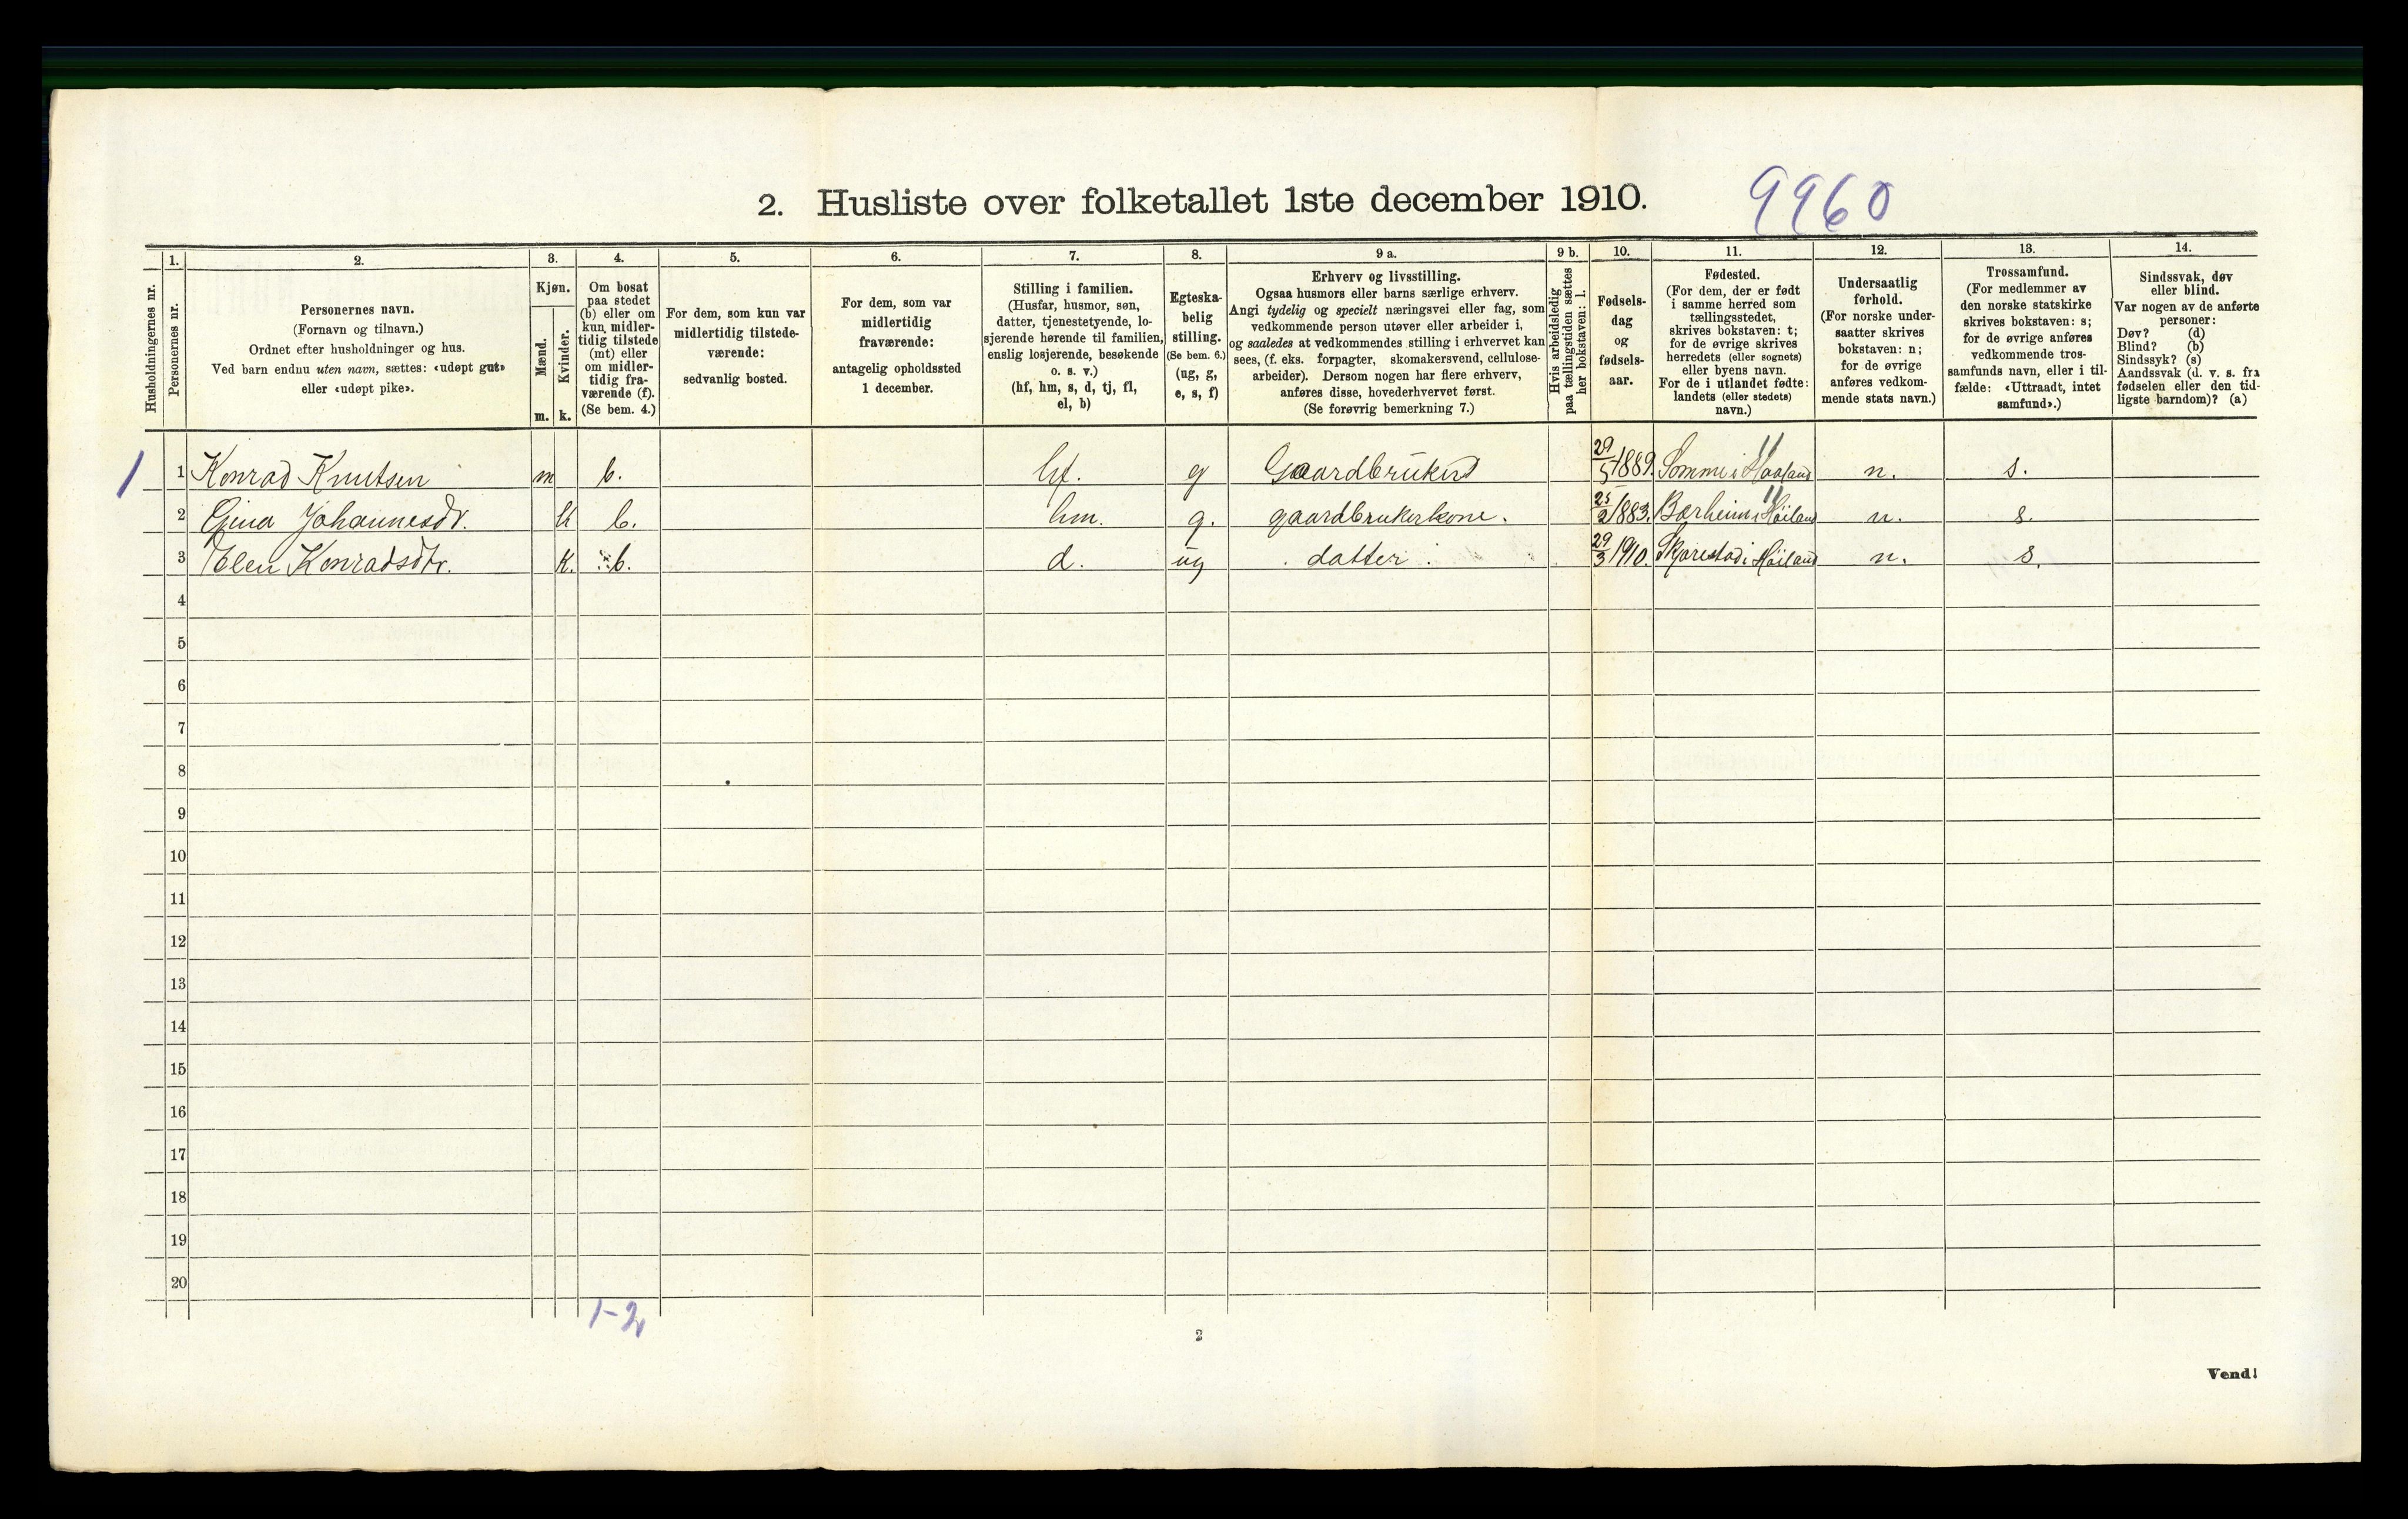 2. Husliste over folketallet 1ste december 1910.
9960
Husholdningernes nr.
1.
Personernes nr.
2.
Personernes navn.
(Fornavn og tilnavn.)
Ordnet efter husholdninger og hus.
Ved barn endnu uten navn, sættes: «udøpt gut»
eller «udøpt pike».
3.
Kjøn.
Mænd.
Kvinder.
m. k.
4.
Om bosat
paa stedet
(b) eller om
kun midler-
tidig tilstede
(mt) eller
om midler-
tidig fra-
værende (f).
(Se bem. 4.)
5.
For dem, som kun var
midlertidig tilstede-
værende:
sedvanlig bosted.
6.
For dem, som var
midlertidig
fraværende:
antagelig opholdssted
1 december.
7.
Stilling i familien.
(Husfar, husmor, søn,
datter, tjenestetyende, lo-
sjerende hørende til familien,
enslig losjerende, besøkende
o. s. v.)
(hf, hm, s, d, tj, fl,
el, b)
8.
Egteska-
belig
stilling.
(Se bem. 6.)
(ug, g,
e, s, f)
9 a.
Erhverv og livsstilling.
Ogsaa husmors eller barns særlige erhverv.
Angi tydelig og specielt næringsvei eller fag, som
vedkommende person utøver eller arbeider i,
og saaledes at vedkommendes stilling i erhvervet kan
sees, (f. eks. forpagter, skomakersvend, cellulose-
arbeider). Dersom nogen har flere erhverv,
anføres disse, hovederhvervet først.
(Se forøvrig bemerkning 7.)
9 b.
Hvis arbeidsledig
paa tællingstiden sættes
her bokstaven: l.
10.
Fødsels-
dag
og
fødsels-
aar.
11.
Fødested.
(For dem, der er født
i samme herred som
tællingsstedet,
skrives bokstaven: t;
for de øvrige skrives
herredets (eller sognets)
eller byens navn.
For de i utlandet fødte:
landets (eller stedets)
navn.)
12.
Undersaatlig
forhold.
(For norske under-
saatter skrives
bokstaven: n;
for de øvrige
anføres vedkom-
mende stats navn.)
13.
Trossamfund.
(For medlemmer av
den norske statskirke
skrives bokstaven: s;
for de øvrige anføres
vedkommende tros-
samfunds navn, eller i til-
fælde: «Uttraadt, intet
samfund».)
14.
Sindssvak, døv
eller blind.
Var nogen av de anførte
personer:
Døv? (d)
Blind? (b)
Sindssyk? (s)
Aandssvak (d. v. s. fra
fødselen eller den tid-
ligste barndom)? (a)
1 1 Konrad Knutsen m b. hf. g Gaardbruker 29/5 1889. Somme i Haaland n. s.
2 Gina Johannesdr. k b. hm. g. gaardbrukerkone. 25/2 1883. Bærheim i Høiland n. s.
3 Elen Konradsdtr. K. b. d. ug datter 29/3 1910. Skjærestad i Høiland n. s.
4
5
6
7
8
9
10
11
12
13
14
15
16
17
18
19
20
1-2
2
Vend!